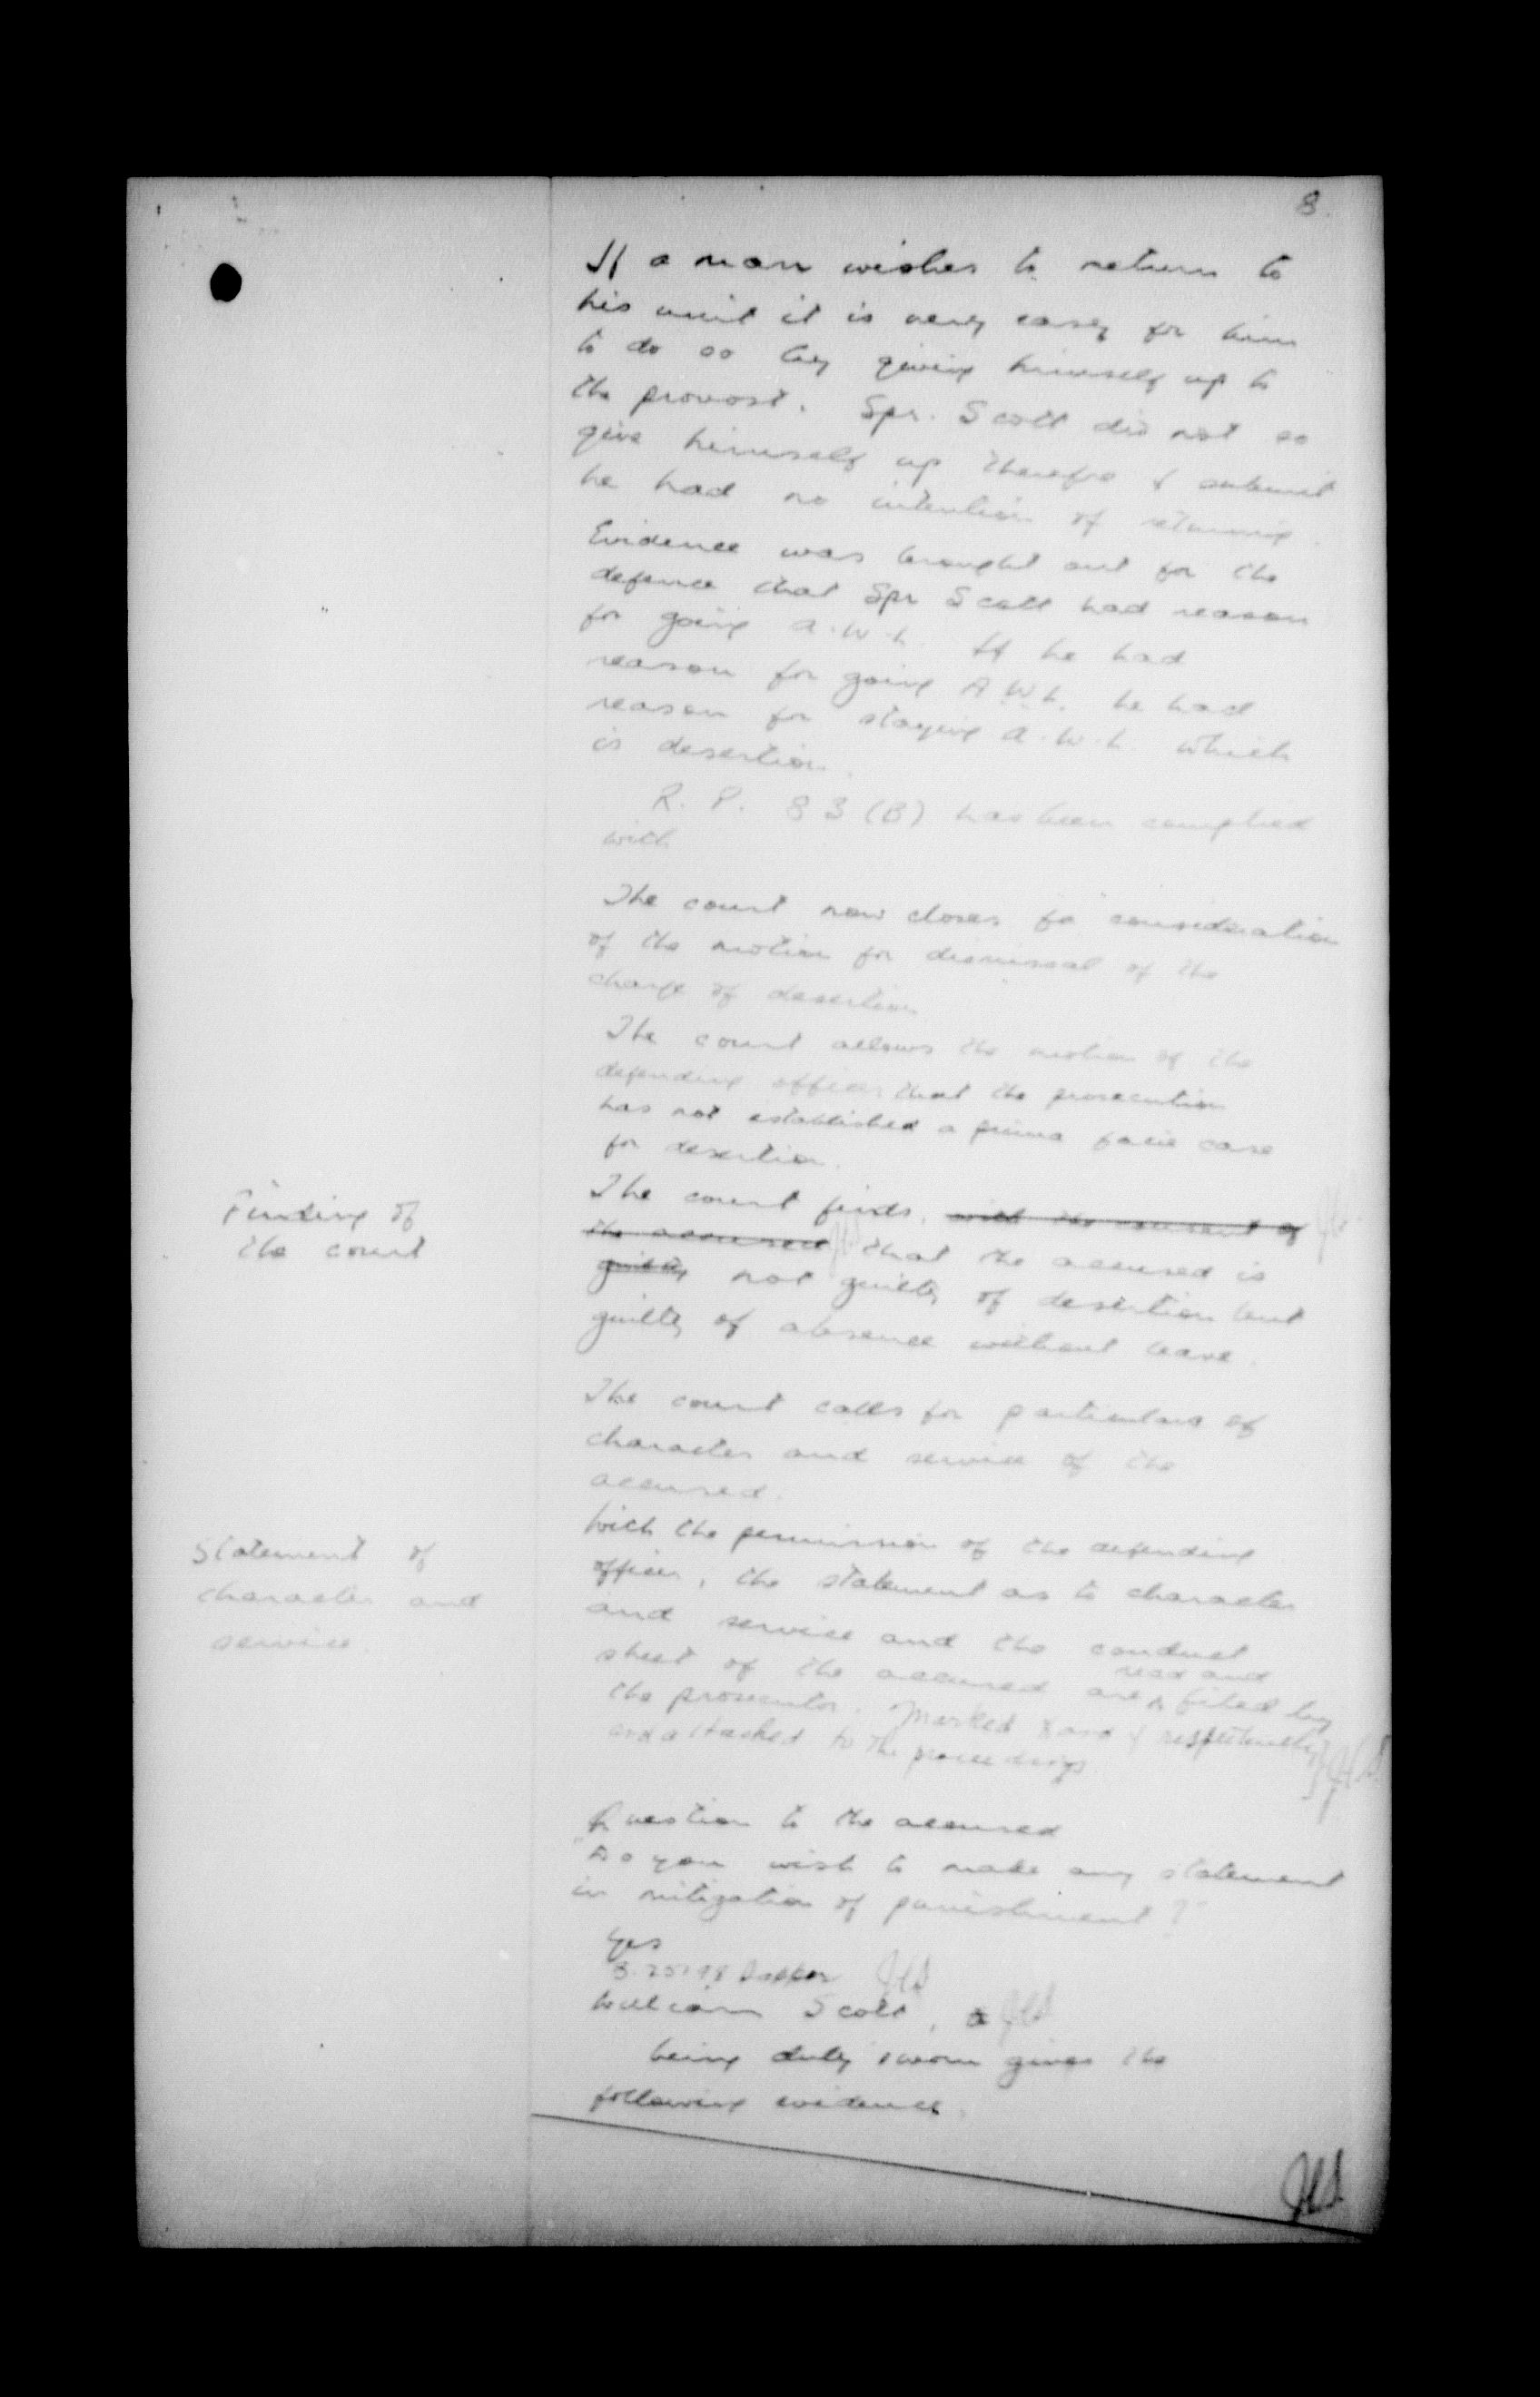 8.
If a man wishes to return to
his unit it is very easy for him
to do so by giving himself up to
the provost. Spr. Scott did not so
give himself up therefore I submit
he had no intention of returning.
Evidence was brought out for the
defence that Spr Scott had reason
for going A.W.L. If he had
reason for going A.W.L. he had
reason for staying A.W.L which
is desertion.
R. P. 83 (B) has been complied
with
The court now closes for consideration
of the motion for dismissal of the
charge of desertion
The court allows the motion of the
defending officer that the prosecution
has not established a prima facie case
for desertion.
Finding of
the court
The court finds, with the consent of
the accused that the accused is
guilty not guilty of desertion but
guilty of absence without leave.
The court calls for particulars of
character and service of the
accused.
Statement of
character and
service.
With the permission of the defending
officer, the statement as to character
and service and the conduct
sheet of the accused are read and filed by
the prosecutor. Marked X and Y respectively
and attached to the proceedings
Question to the accused
"Do you wish to make any statement
in mitigation of punishment?"
Yes
Sapper
William Scott,
being duly sworn gives the
following evidence.